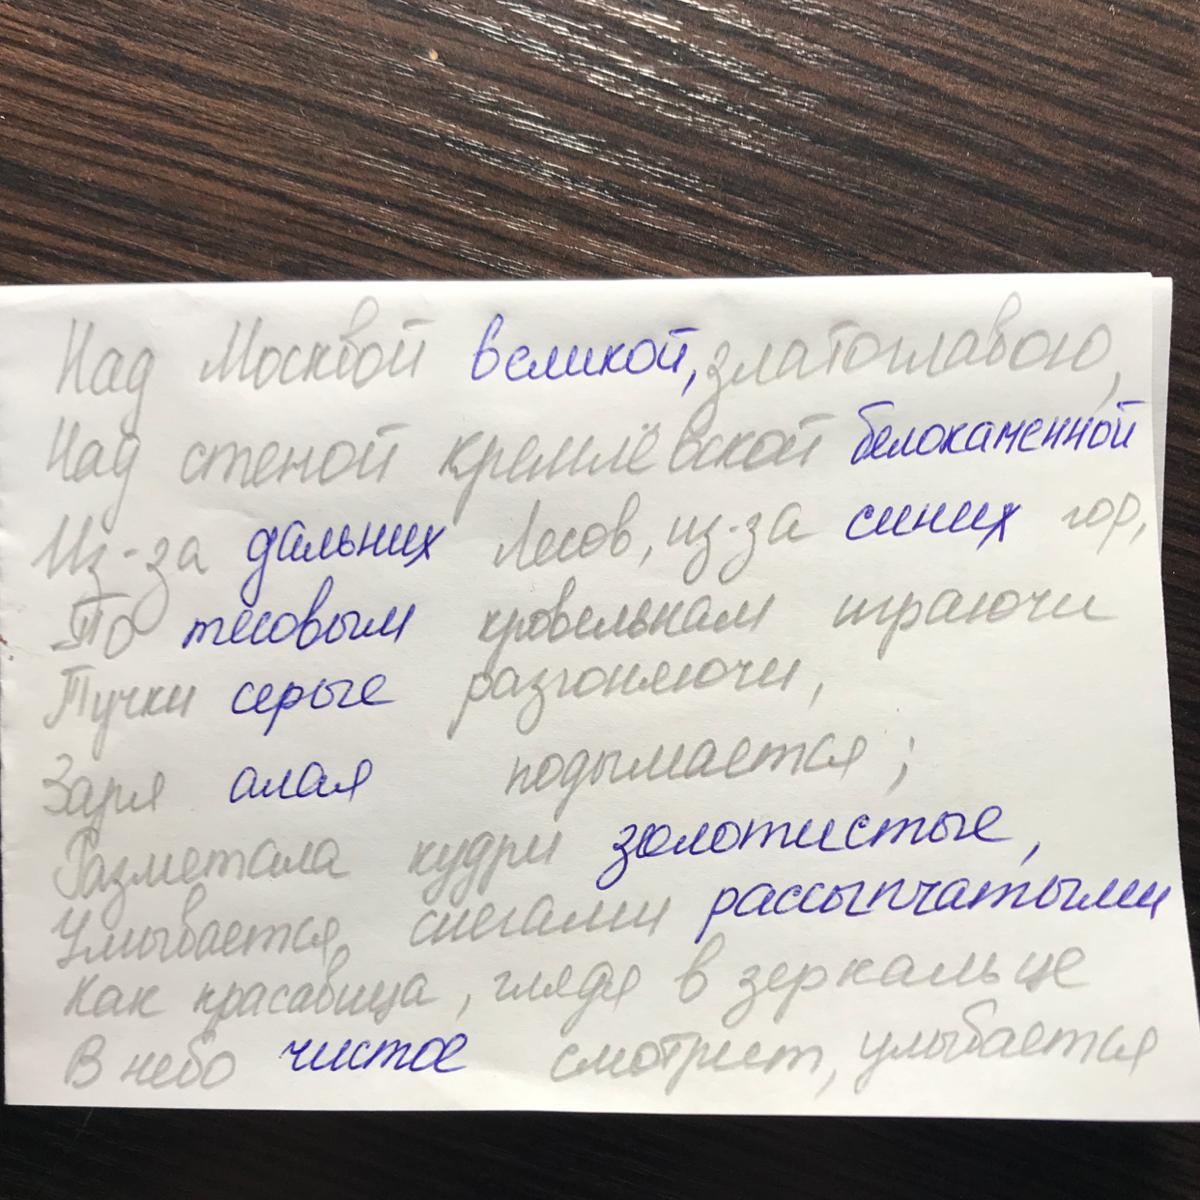 Над Москвой великой, златоглавою,
Над стеной кремлёвской белокаменной
Из-за дальних лесов, из-за синих гор,
По тесовым кровелькам играючи
Тучки серые разгоняючи,
Заря алая подымается;
Разметала кудри золотистые,
Умывается снегами рассыпчатыми
Как красавица, глядя в зеркальце
В небо чистое смотрит, улыбается